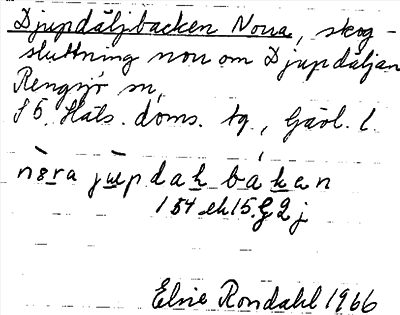 Djupdäljbacken Norra, skog-
sluttning norr om Djupdäljan
Rengsjö sn,
S Ö. Häls. doms. tg., Gävl. l.
nèra jùpdah bákan
154 eh 15. G 2 j
Elsie Rondahl 1966